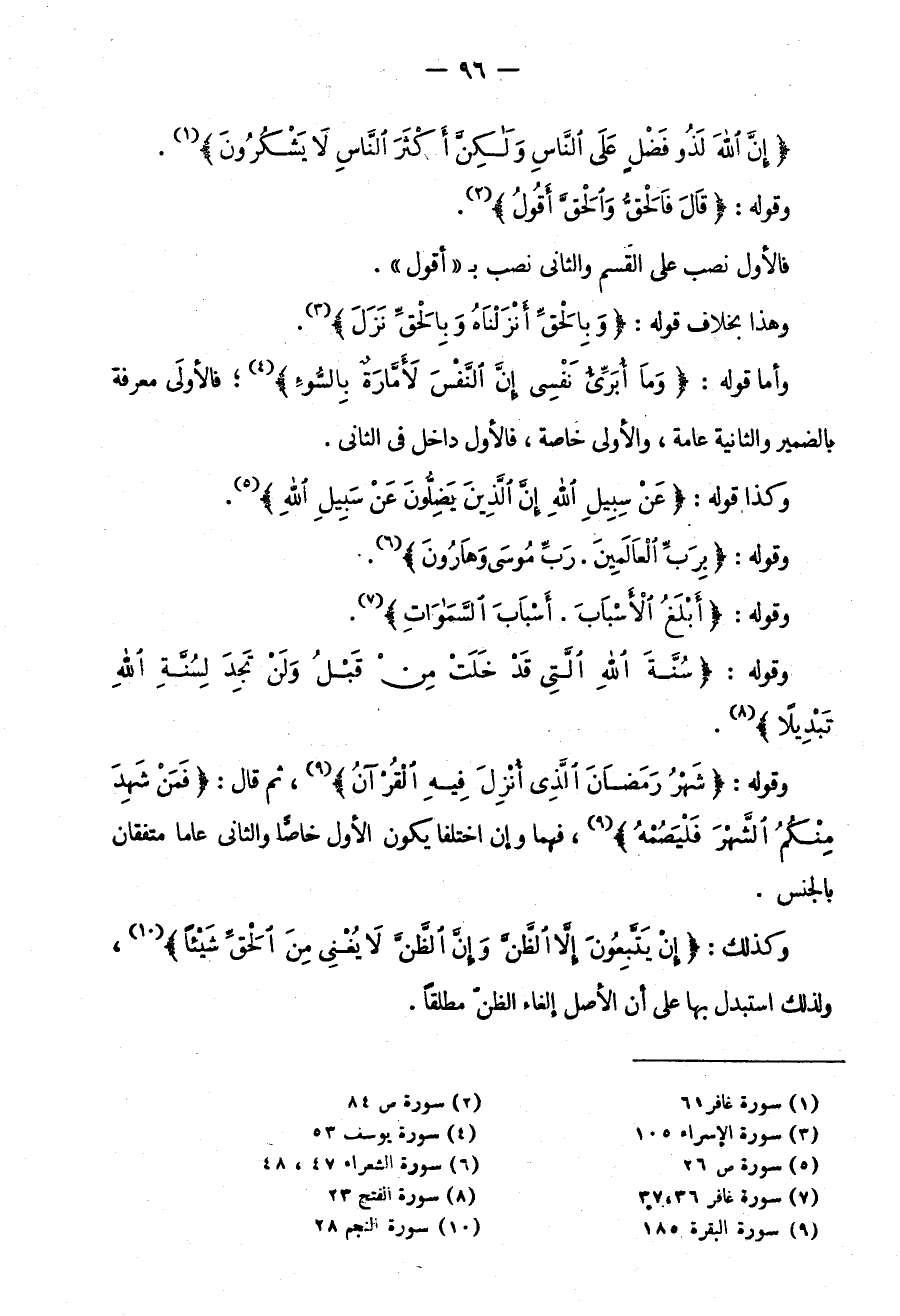 — ٩٦ —
﴿ إِنَّ ٱللهَ لَذُو فَضْلٍ عَلَى ٱلنَّاسِ وَلَـٰكِنَّ أَكْثَرَ ٱلنَّاسِ لَا يَشْكُرُونَ ﴾(١) .
وقوله : ﴿ قَالَ فَٱلْحَقُّ وَٱلْحَقَّ أَقُولُ ﴾(٢).
فالأول نصب على القسم والثانى نصب بـ «أقول» .
وهذا بخلاف قوله : ﴿ وَبِٱلْحَقِّ أَنْزَلْنَاهُ وَبِٱلْحَقِّ نَزَلَ ﴾(٣).
وأما قوله : ﴿ وَمَا أُبَرِّئُ نَفْسِى إِنَّ ٱلنَّفْسَ لَأَمَّارَةٌ بِالسُّوءِ ﴾(٤) ؛ فالأولَى معرفة
بالضمير والثانية عامة ، والأولى خاصة ، فالأول داخل فى الثانى .
وكذا قوله : ﴿ عَنْ سِبِيلِ ٱللهِ إِنَّ ٱلَّذِينَ يَضِلُّونَ عَنْ سَبِيلِ ٱللهِ ﴾(٥).
وقوله : ﴿ بِرَبِّ ٱلْعَالَمِينَ . رَبِّ مُوسَى وَهَارُونَ ﴾(٦).
وقوله : ﴿ أَبْلُغُ ٱلْأَسْبَابَ . أَسْبَابَ ٱلسَّمَٰوَاتِ ﴾(٧).
وقوله : ﴿ سُنَّةَ ٱللهِ ٱلَّتِى قَدْ خَلَتْ مِنْ قَبْلُ وَلَنْ تَجِدَ لِسُنَّةِ ٱللهِ
تَبْدِيلًا ﴾(٨) .
وقوله : ﴿ شَهْرُ رَمَضَانَ ٱلَّذِى أُنْزِلَ فِيهِ ٱلْقُرْآنُ ﴾(٩) ، ثم قال : ﴿ فَمَنْ شَهِدَ
مِنْكُمُ ٱلشَّهْرَ فَلْيَصُمْهُ ﴾(٩) ، فهما وإن اختلفا يكون الأول خاصًّا والثانى عاما متفقان
بالجنس .
وكذلك : ﴿ إِنْ يَتَّبِعُونَ إِلَّا ٱلظَّنَّ وَإِنَّ ٱلظَّنَّ لَا يُغْنِى مِنَ ٱلْحَقِّ شَيْئًا ﴾(١٠) ،
ولذلك استبدل بها على أن الأصل إلغاء الظنّ مطلقاً .
(١) سورة غافر ٦١
(٢) سورة ص ٨٤
(٣) سورة الإسراء ١٠٥
(٤) سورة يوسف ٥٣
(٥) سورة ص ٢٦
(٦) سورة الشعراء ٤٧ ، ٤٨
(٧) سورة غافر ٣٦،٣٧
(٨) سورة الفتح ٢٣
(٩) سورة البقرة ١٨٥
(١٠) سورة النجم ٢٨